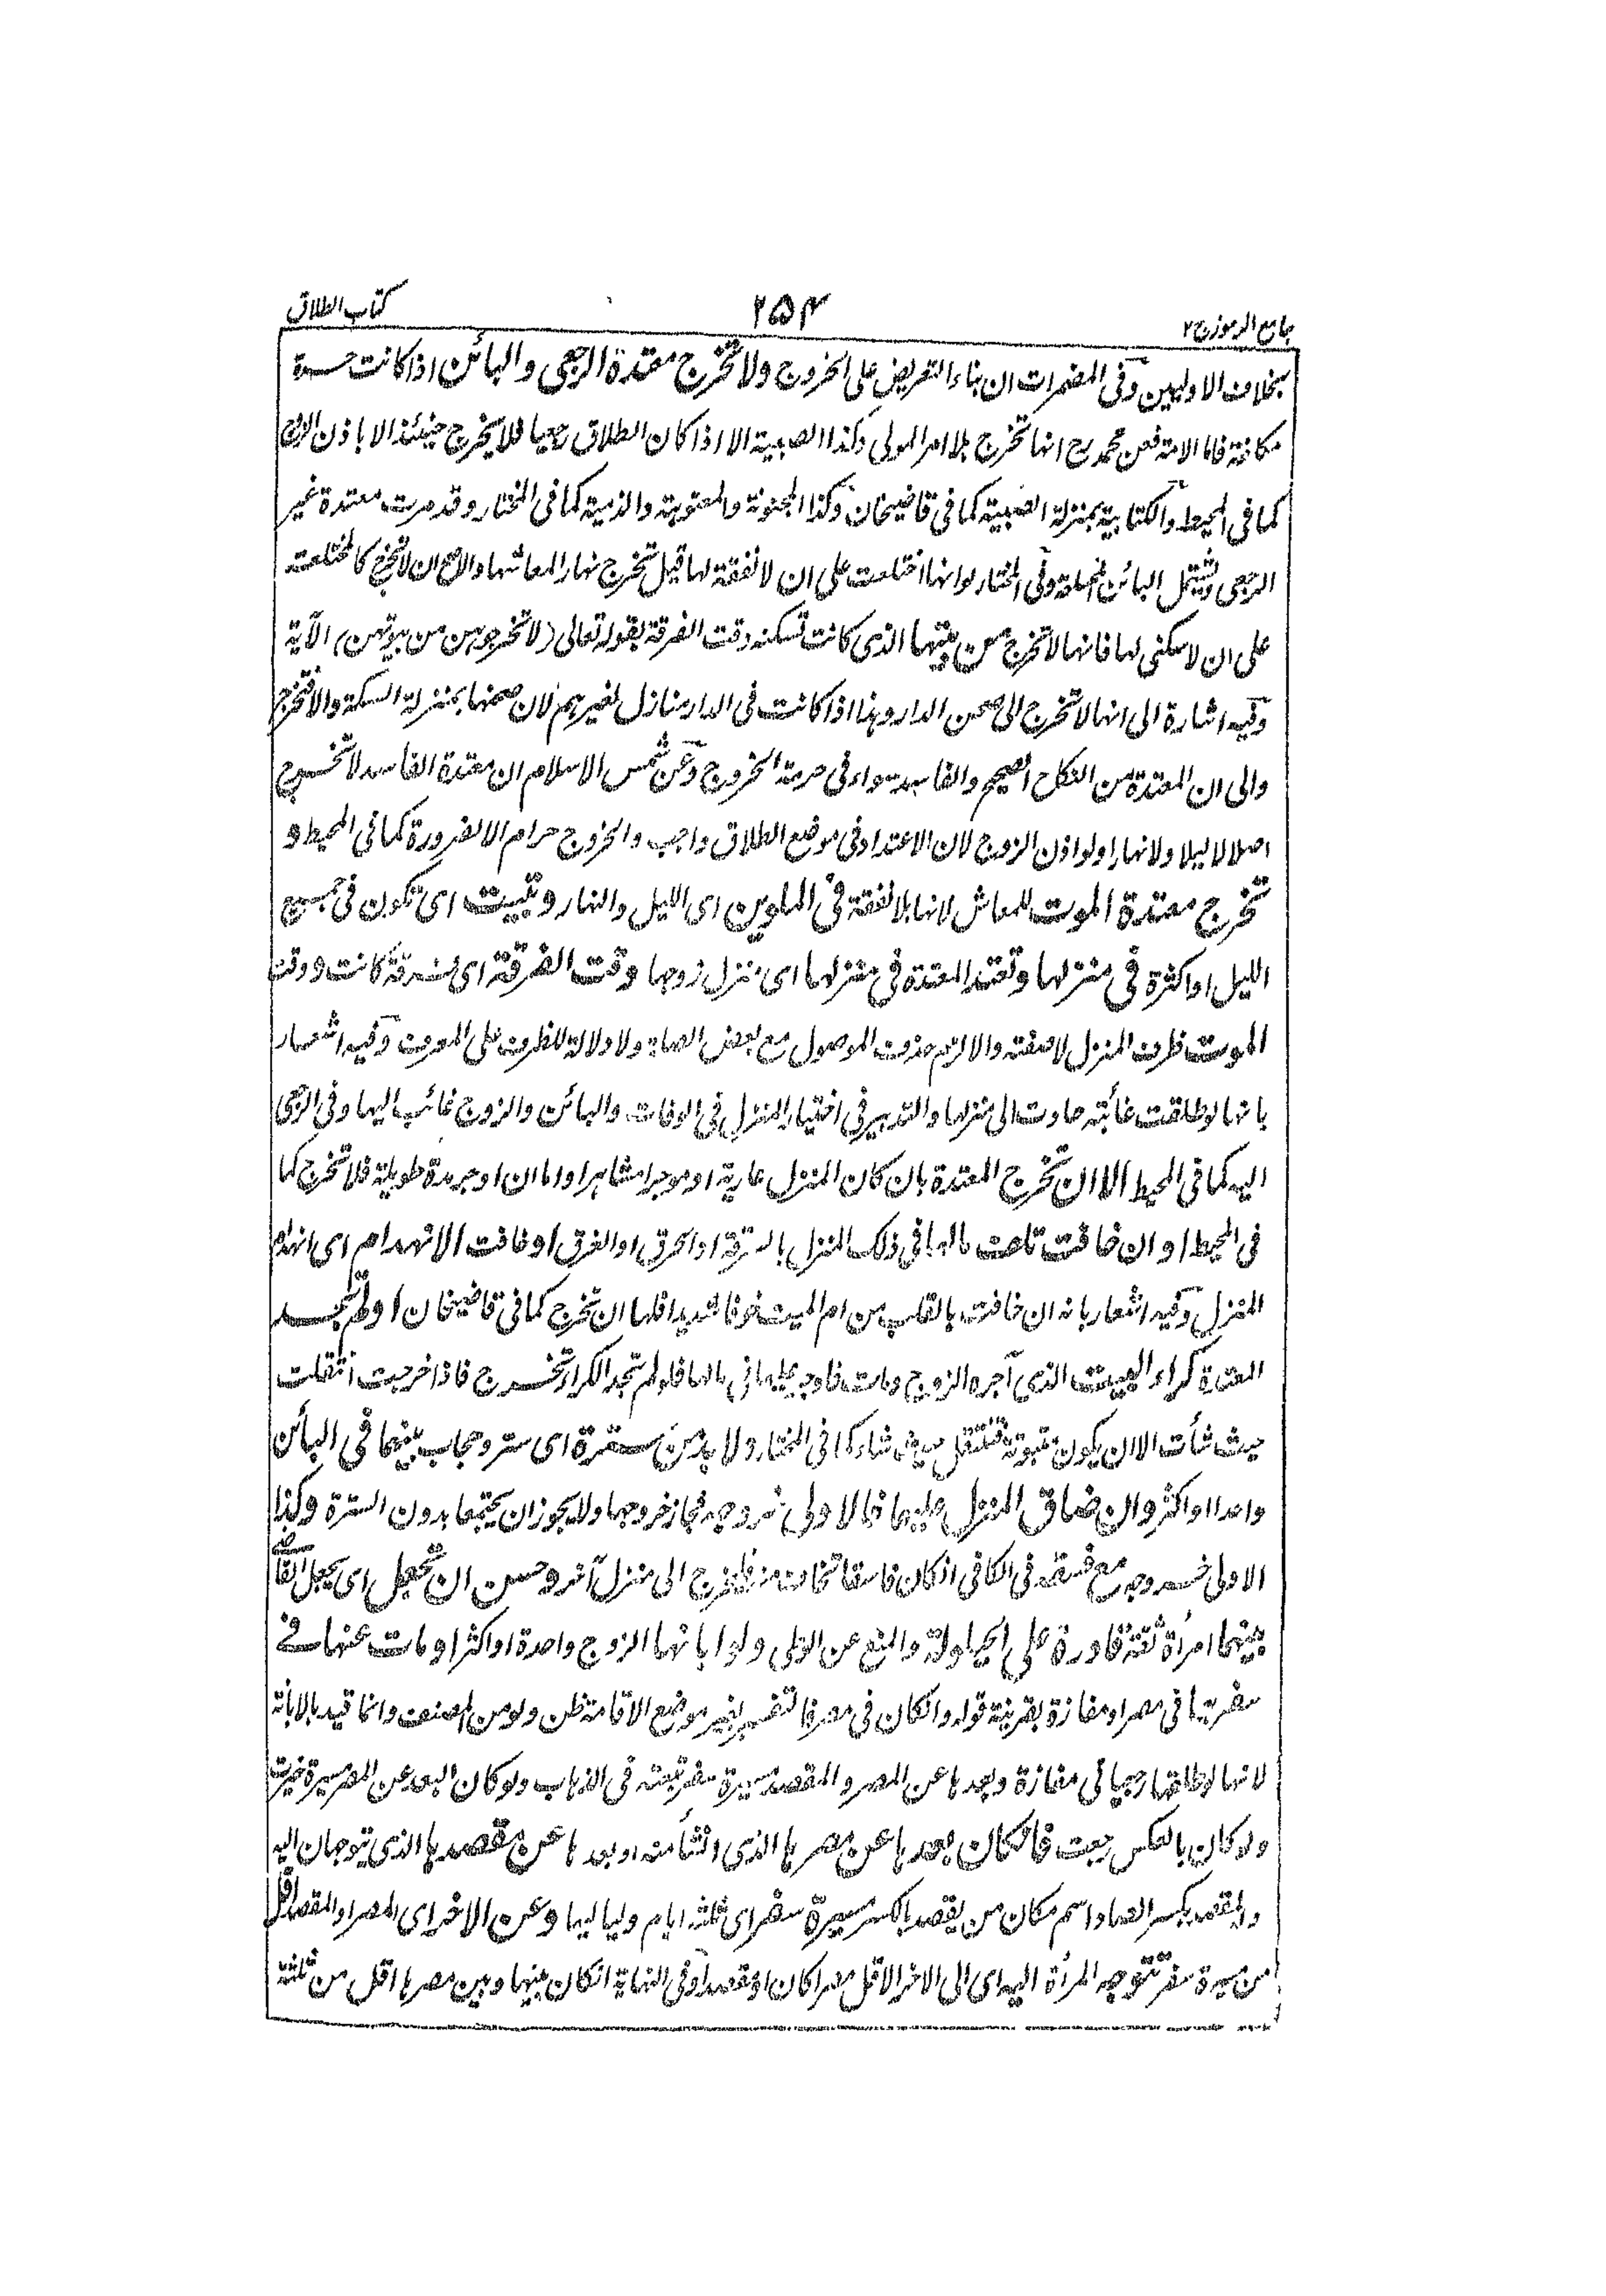 جامع الرموز ج ۲
۲۵۴
كتاب الطلاق
بخلاف الاوليين وفى المضمرات ان بناء التعريض على الخروج ولا تخرج معتدة الرجعى والبائن اذا كانت حرة
مكلفة فاما الامة فعن محمد رح انها تخرج بلا امر المولى وكذا الصبية الا اذا كان الطلاق رجعيا فلا يخرج حينئذ الا باذن الزوج
كما فى المحيط والكتابية بمنزلة الصبية كما فى قاضيخان وكذا المجنونة والمعتوهة والذمية كما فى المختار وقد مرت معتدة غير
الرجعى وتشتمل البائن المختلعة وفى المختار لو انها اختلعت على ان لا نفقة لها قيل تخرج نهارا لمعاشها والاصح ان لا تخرج كالمختلعة
على ان لا سكنى لها فانها لا تخرج من بيتها الذى كانت تسكنه وقت الفرقة بقوله تعالى (لا تخرجوهن من بيوتهن) الآية
وفيه اشارة الى انها لا تخرج الى صحن الدار وهذا اذا كانت فى الدار منازل لغيرهم لان صحنها بمنزلة السكة والا فتخرج
والى ان المعتدة من النكاح الصحيح والفاسد سواء فى حرمة الخروج وعن شمس الاسلام ان معتدة الفاسد لا تخرج
اصلا لا ليلا ولا نهارا ولو اذن الزوج لان الاعتداد فى موضع الطلاق واجب والخروج حرام الا لضرورة كما فى المحيط و
تخرج معتدة الموت للمعاش لانها بلا نفقة فى الملوين اى الليل والنهار وتبيت اى تكون فى جميع
الليل او اكثره فى منزلها وتعتد المعتدة فى منزلها اى منزل زوجها وقت الفرقة اى فرقة كانت ووقت
الموت ظرف المنزل لا صفته والا لزم حذف الموصول مع بعض الصلة ولا دلالة للظرف على المعرف وفيه اشعار
بانها لو طلقت غائبة عادت الى منزلها والتدبير فى اختيار المنزل فى الوفات والبائن والزوج غائب اليها وفى الرجعى
اليه كما فى المحيط الا ان تخرج المعتدة بان كان المنزل عارية او موجرا مشاهرة واما ان اوجر مدة طويلة فلا تخرج كما
فى المحيط او ان خافت تلف مالها فى ذلك المنزل بالسرقة او الحرق او الغرق او خافت الانهدام اى انهدام
المنزل وفيه اشعار بانه ان خافت بالقلب من ام الميت خوفا شديدا فلها ان تخرج كما فى قاضيخان او لم تجد
المعتدة كراء البيت الذى آجره الزوج ومات فاوجب عليها فى مالها فلو لم تجد الكراء تخرج فاذا خرجت انتقلت
حيث شأت الا ان يكون مبتوتة فتنتقل حيث شاء كما فى المختار ولا بد من سترة اى ستر وحجاب بينهما فى البائن
واحدا او اكثر وان ضاق المنزل عليهما فالاولى خروجه فجاز خروجها ولا يجوز ان يجتمعا بدون السترة وكذا
الاولى خروجه مع فسقه فى الكافى ان كان فاسقا تخاف منه فلتخرج الى منزل آخر وحسن ان تجعل اى يجعل القاضى
بينهما امرأة ثقة قادرة على الحيلولة والمنع عن الوطى ولو ابانها الزوج واحدة او اكثر او مات عنها فى
سفر بها فى مصر او مفازة بقرينة قوله وان كان فى مصر فالتفسير بغير موضع الاقامة ظن ولو من المصنف وانما قيد بالابانة
لانها لو طلقها رجعيا فى مفازة وبعدها عن المصر والمقصد مسيرة سفر تبعته فى الذهاب ولو كان البعد عن المصر مسيرة خيرت
ولو كان بالعكس رجعت فان كان بعدها عن مصرها الذى انشأ منه او بعدها عن مقصدها الذى يتوجهان اليه
والمقصد بكسر الصاد اسم مكان من يقصد بالكسر مسيرة سفر اى ثلثة ايام ولياليها وعن الاخر اى المصر او المقصد اقل
من مسيرة سفر تتوجه المرأة اليه اى الى الاخر الاقل مصرا كان او مقصدا وفى النهاية ان كان بينها وبين مصرها اقل من ثلثة